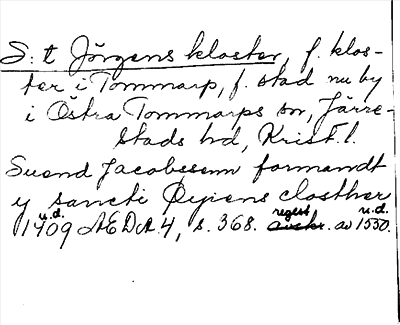 S:t Jörgens kloster, f. klos-
ter i Tommarp, f. stad nu by
i Östra Tommarps sn, Järre-
stads hd, Krist. l.
Suend Jacobssenn formandt
y sancti Ørjens closther
u.d. regest u.d.
1409 AEDA 4, s. 368. avskr. av 1550.